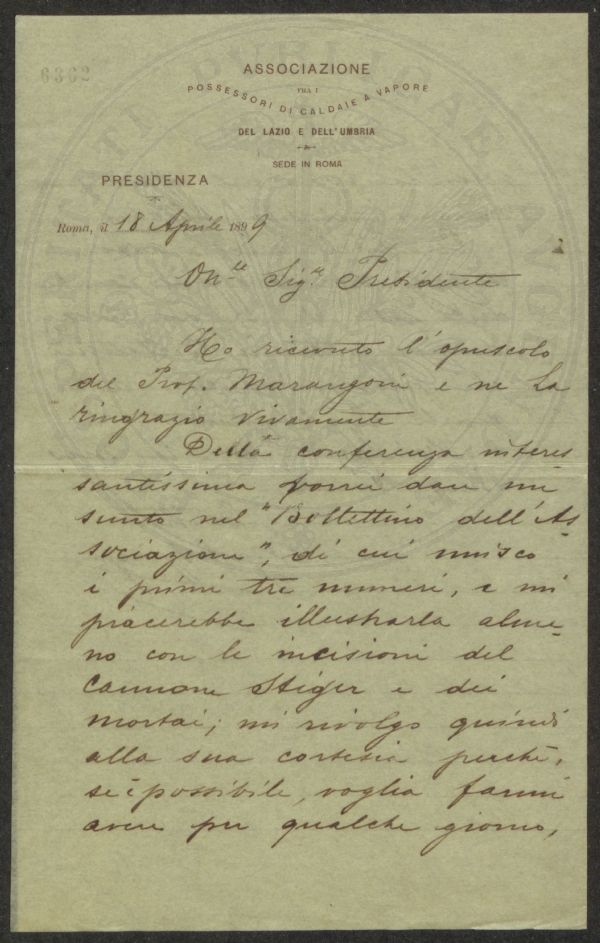 6362
ASSOCIAZIONE
FRA I
POSSESSORI DI CALDAIE A VAPORE
DEL LAZIO E DELL'UMBRIA
SEDE IN ROMA
PRESIDENZA
Roma, il 18 Aprile 1899
On.le Sig.re Presidente
Ho ricevuto l'opuscolo
del Prof. Marangoni e ne La
ringrazio vivamente
Della conferenza interes
santissima vorrei dare un
sunto nel "Bollettino dell'As-
sociazione", di cui unisco
i primi tre numeri, e mi
piacerebbe illustrarla alme-
no con le incisioni del
Cannone Stiger e dei
mortai; mi rivolgo quindi
alla sua cortesia perchè,
se è possibile, voglia farmi
avere per qualche giorno,